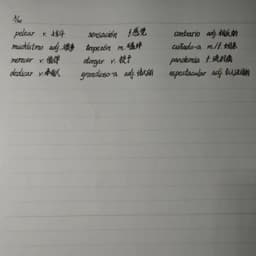 pelear v. 战斗 sensación f. 感觉 contrario adj. 相反的
muchísimo adj. tropezón m. 磕绊 cuñado-a m./f.
merecer v. 值得 otorgar v. 授予 pandemia f. 流行病
dedicar v. grandioso-a adj. 伟大的 espectacular adj.